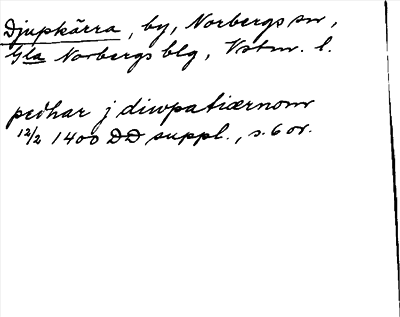 Djupkärra, by, Norbergs sn,
Gla Norbergs blg, Vstm. l.
peðhar j diwpatiærnom
12/2 1400 DD suppl., s. 6 or.